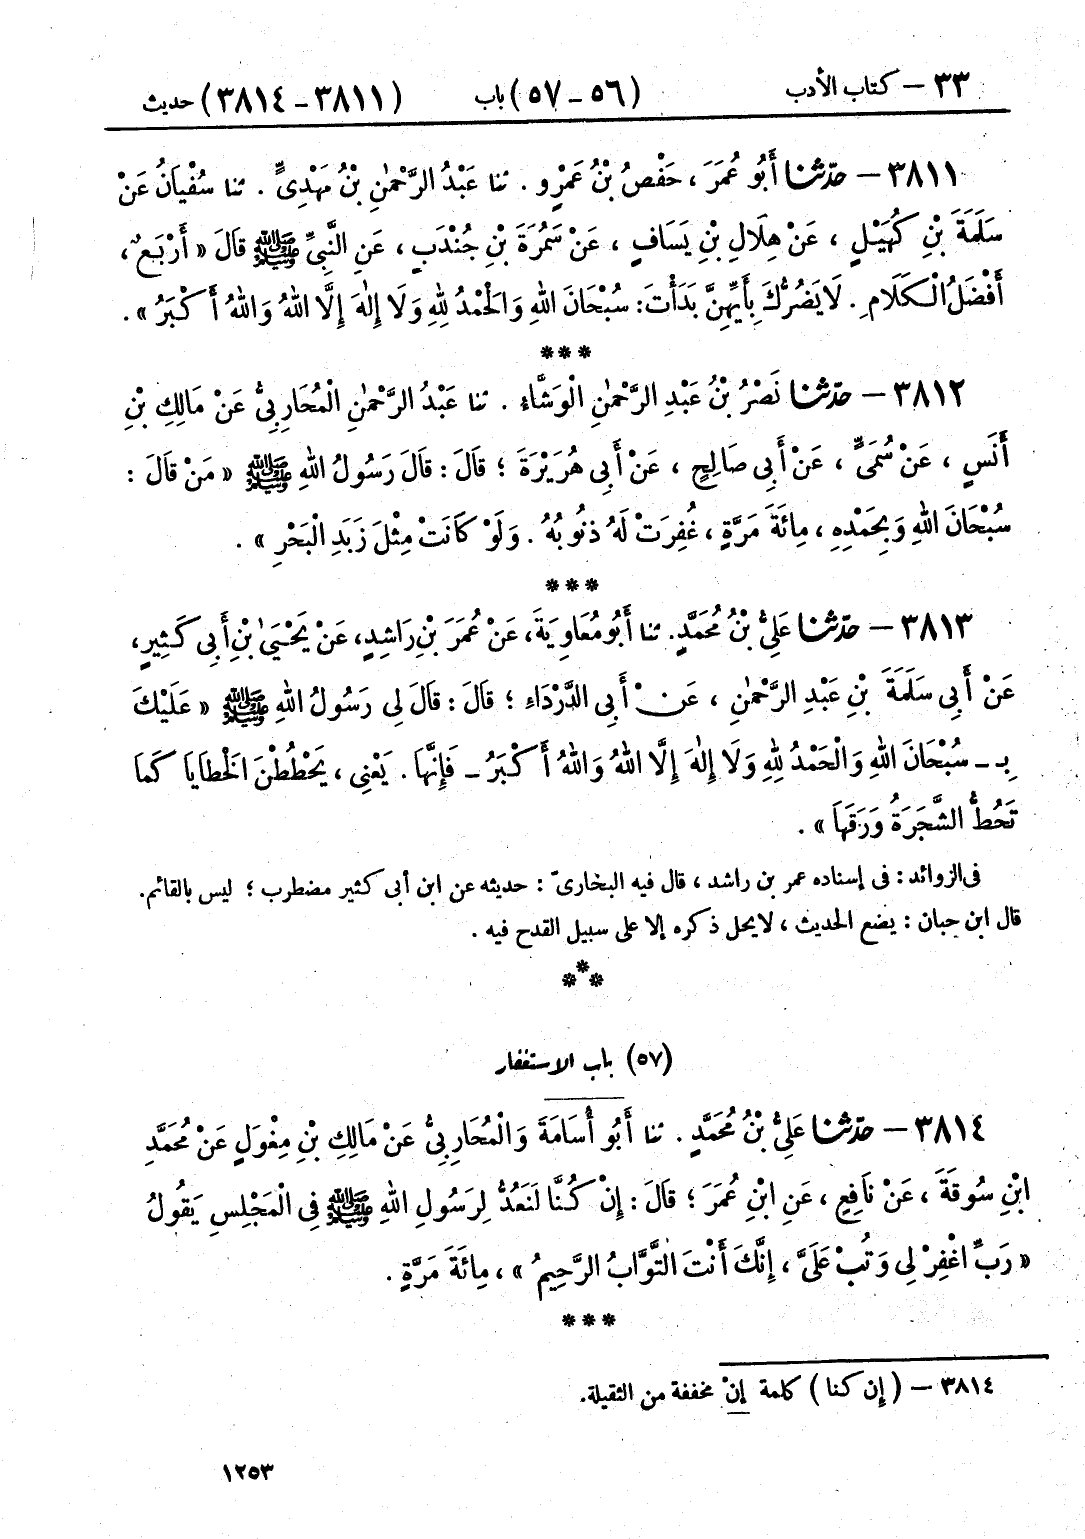 ٣٣ – كتاب الأدب (٥٦ – ٥٧) باب (٣٨١١ – ٣٨١٤) حديث
٣٨١١ – حَدّثنا أَبُو عُمَرَ ، حَفْصُ بْنُ عَمْرٍو . ثنا عَبْدُ الرَّحْمٰنِ بْنُ مَهْدِىٍّ . ثنا سُفْيَانُ عَنْ
سَلَمَةَ بْنِ كُهَيْلٍ ، عَنْ هِلَالِ بْنِ يَسَافٍ ، عَنْ سَمُرَةَ بْنِ جُنْدَبٍ ، عَنِ النَّبِىِّ ﷺ قَالَ « أَرْبَعٌ ،
أَفْضَلُ الْكَلَامِ . لَا يَضُرُّكَ بِأَيِّهِنَّ بَدَأْتَ : سُبْحَانَ اللهِ وَالْحَمْدُ لِلهِ وَلَا إِلٰهَ إِلَّا اللهُ وَاللهُ أَكْبَرُ » .
***
٣٨١٢ – حَدّثنا نَصْرُ بْنُ عَبْدِ الرَّحْمٰنِ الْوَشَّاءِ . ثنا عَبْدُ الرَّحْمٰنِ الْمُحَارِبِىُّ عَنْ مَالِكِ بْنِ
أَنَسٍ ، عَنْ سُمَىٍّ ، عَنْ أَبِى صَالِحٍ ، عَنْ أَبِى هُرَيْرَةَ ؛ قَالَ : قَالَ رَسُولُ اللهِ ﷺ « مَنْ قَالَ :
سُبْحَانَ اللهِ وَبِحَمْدِهِ ، مِائَةَ مَرَّةٍ ، غُفِرَتْ لَهُ ذُنُوبُهُ . وَلَوْ كَانَتْ مِثْلَ زَبَدِ الْبَحْرِ » .
***
٣٨١٣ – حَدّثنا عَلِىُّ بْنُ مُحَمَّدٍ. ثنا أَبُو مُعَاوِيَةَ، عَنْ عُمَرَ بْنِ رَاشِدٍ، عَنْ يَحْيَىٰ بْنِ أَبِى كَثِيرٍ،
عَنْ أَبِى سَلَمَةَ بْنِ عَبْدِ الرَّحْمٰنِ ، عَنْ أَبِى الدَّرْدَاءِ ؛ قَالَ : قَالَ لِى رَسُولُ اللهِ ﷺ « عَلَيْكَ
بِـ – سُبْحَانَ اللهِ وَالْحَمْدُ لِلهِ وَلَا إِلٰهَ إِلَّا اللهُ وَاللهُ أَكْبَرُ – فَإِنَّهَا . يَعْنِى ، يَحْطُطْنَ الْخَطَايَا كَمَا
تَحُطُّ الشَّجَرَةُ وَرَقَهَا » .
فى الزوائد : فى إسناده عمر بن راشد ، قال فيه البخارىّ : حديثه عن ابن أبى كثير مضطرب ؛ ليس بالقائم.
قال ابن حبان : يضع الحديث ، لا يحل ذكره إلا على سبيل القدح فيه .
***
(٥٧) باب الاستغفار
٣٨١٤ – حَدّثنا عَلِىُّ بْنُ مُحَمَّدٍ . ثنا أَبُو أُسَامَةَ وَالْمُحَارِبِىُّ عَنْ مَالِكِ بْنِ مِغْوَلٍ عَنْ مُحَمَّدِ
ابْنِ سُوقَةَ ، عَنْ نَافِعٍ ، عَنِ ابْنِ عُمَرَ ؛ قَالَ : إِنْ كُنَّا لَنَعُدُّ لِرَسُولِ اللهِ ﷺ فِى الْمَجْلِسِ يَقُولُ
« رَبِّ اغْفِرْ لِى وَتُبْ عَلَىَّ ، إِنَّكَ أَنْتَ التَّوَّابُ الرَّحِيمُ » ، مِائَةَ مَرَّةٍ .
***
٣٨١٤ – ( إِن كنا ) كلمة إِنْ مخففة من الثقيلة.
١٢٥٣